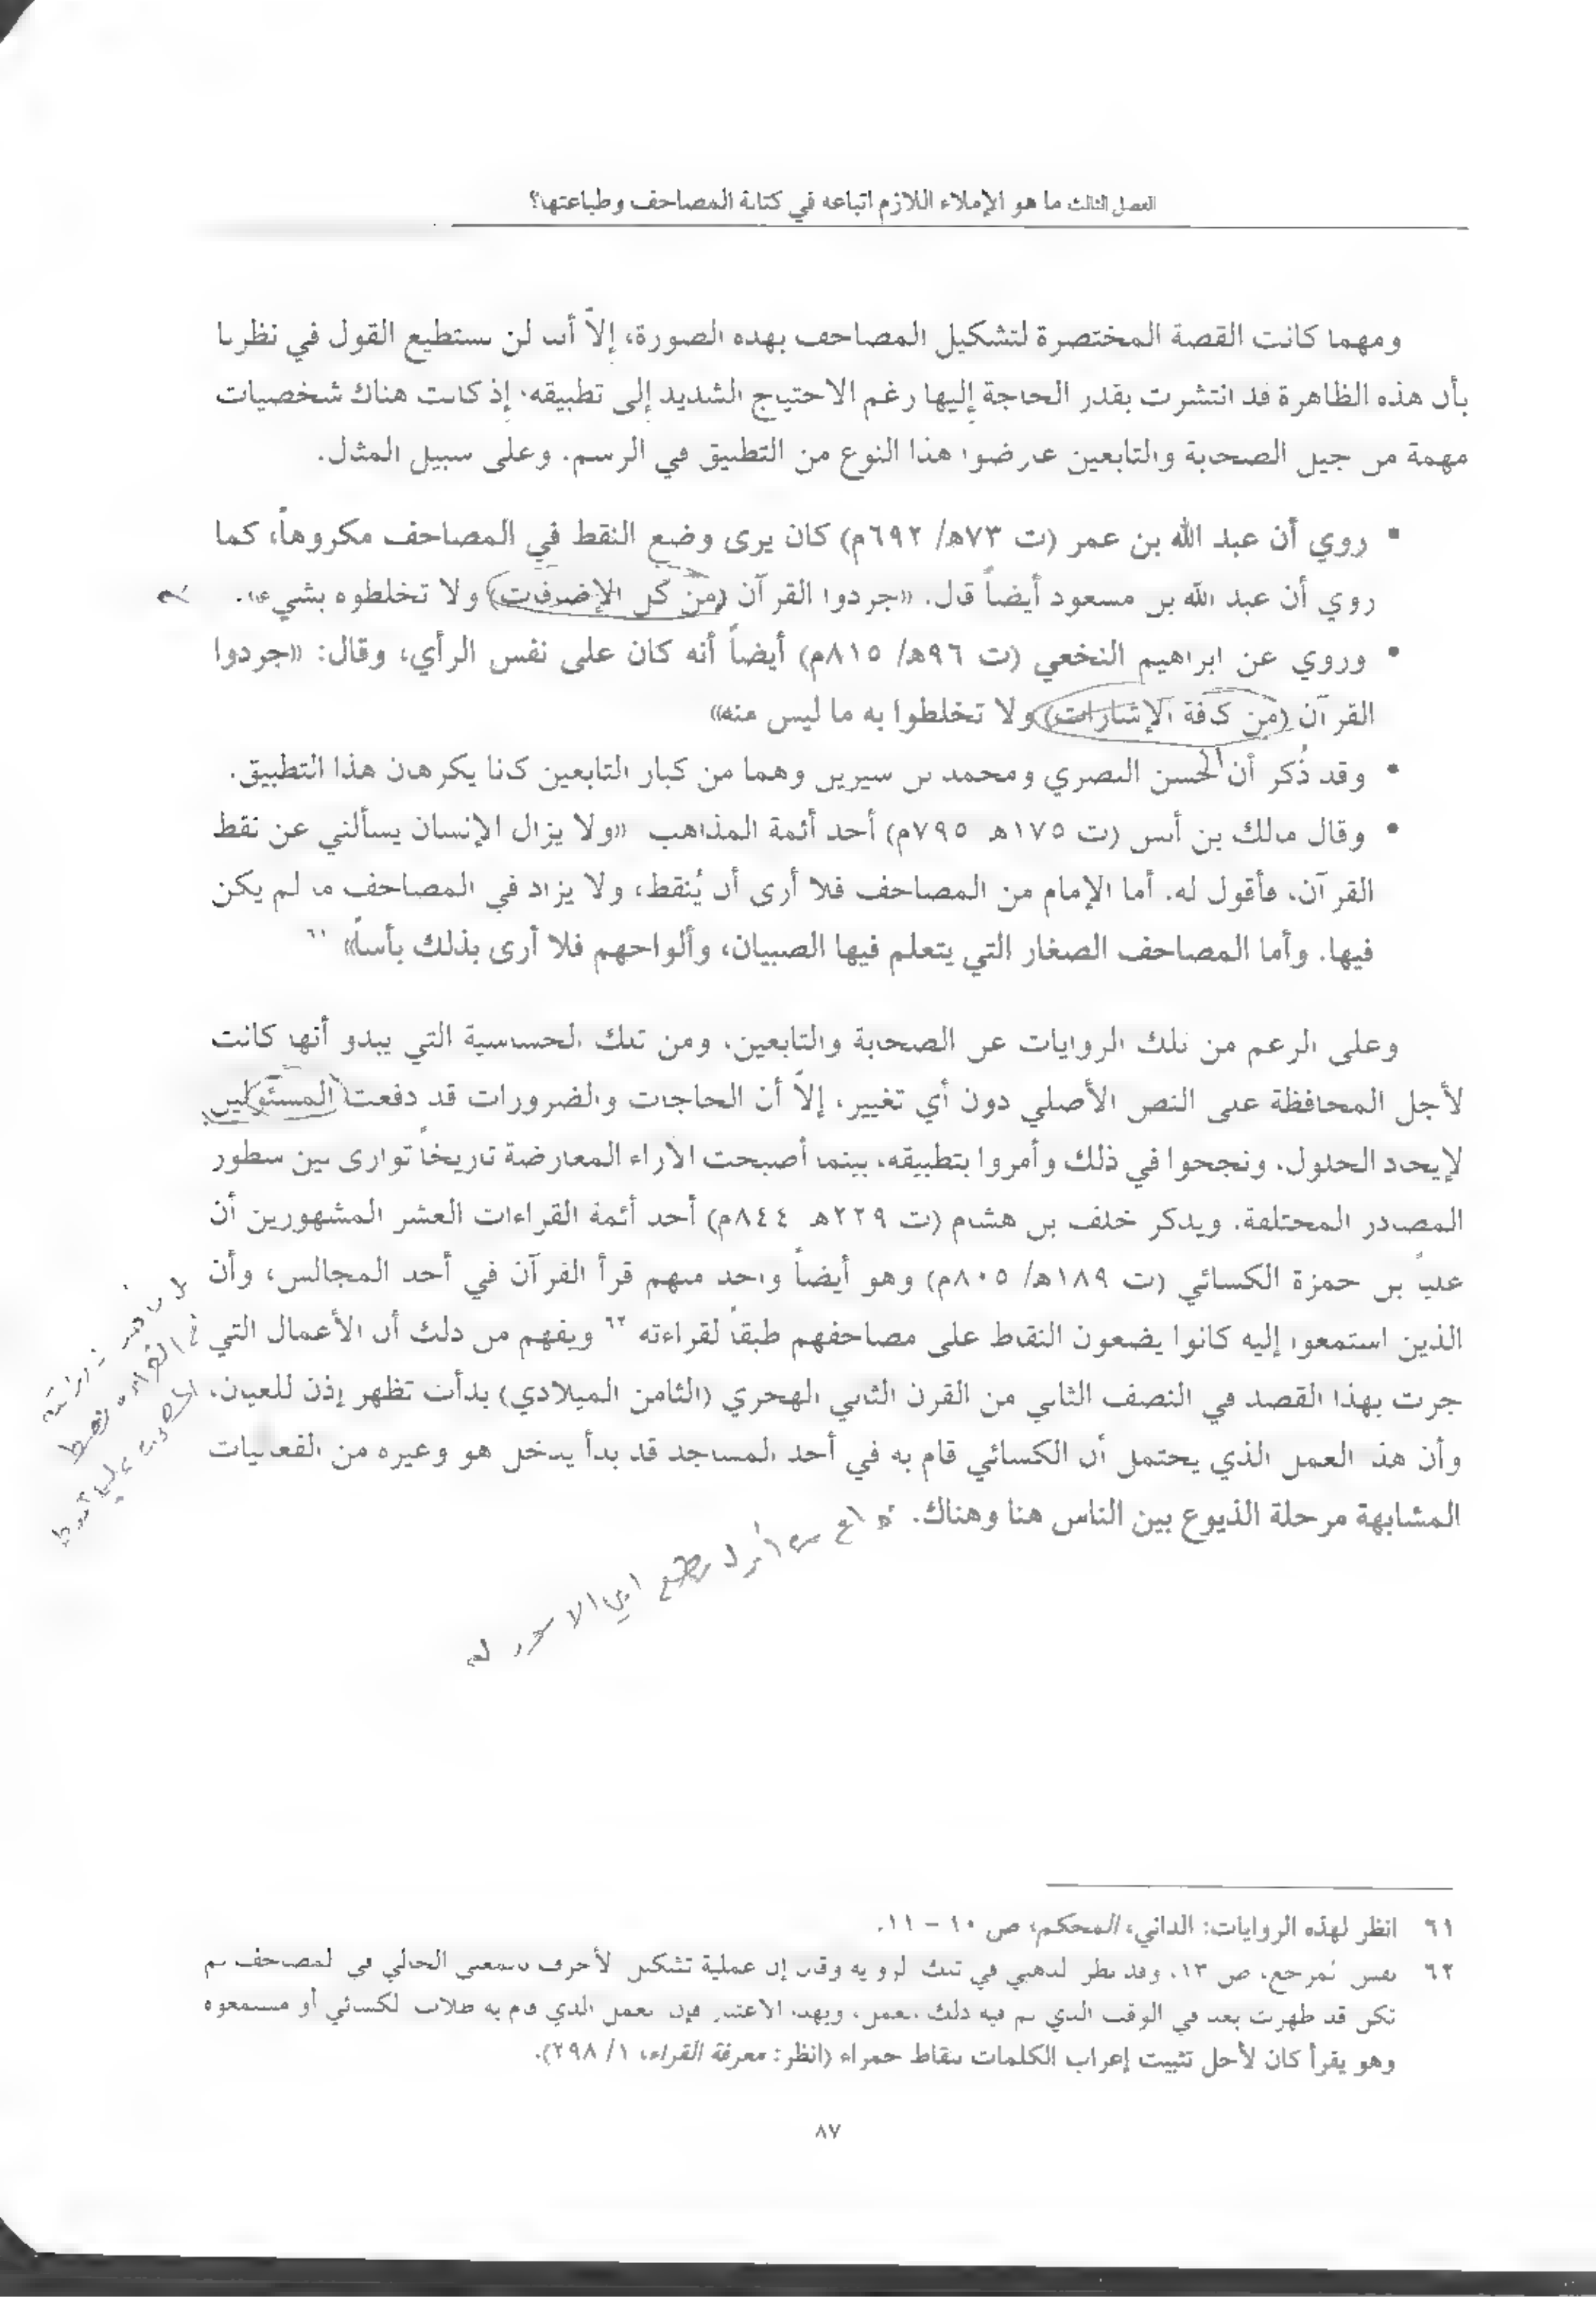 الفصل الثالث ما هو الإملاء اللازم اتباعه في كتابة المصاحف وطباعتها؟
ومهما كانت القصة المختصرة لتشكيل المصاحف بهذه الصورة، إلاّ أننا لن نستطيع القول في نظرنا
بأن هذه الظاهرة قد انتشرت بقدر الحاجة إليها رغم الاحتياج الشديد إلى تطبيقه. إذ كانت هناك شخصيات
مهمة من جيل الصحابة والتابعين عارضوا هذا النوع من التطبيق في الرسم. وعلى سبيل المثال.
• روي أن عبد الله بن عمر (ت ٧٣هـ/ ٦٩٢م) كان يرى وضع النقط في المصاحف مكروهاً، كما
روي أن عبد الله بن مسعود أيضاً قال. «جردوا القرآن (من كل الإضافات) ولا تخلطوه بشيء».
• وروي عن ابراهيم النخعي (ت ٩٦هـ/ ٨١٥م) أيضاً أنه كان على نفس الرأي، وقال: «جردوا
القرآن (من كافة الإشارات) ولا تخلطوا به ما ليس منه»
• وقد ذُكر أن الحسن البصري ومحمد بن سيرين وهما من كبار التابعين كانا يكرهان هذا التطبيق.
• وقال مالك بن أنس (ت ١٧٥هـ ٧٩٥م) أحد أئمة المذاهب «ولا يزال الإنسان يسألني عن نقط
القرآن، فأقول له. أما الإمام من المصاحف فلا أرى أن يُنقط، ولا يزاد في المصاحف ما لم يكن
فيها. وأما المصاحف الصغار التي يتعلم فيها الصبيان، وألواحهم فلا أرى بذلك بأساً» ٦١
وعلى الرغم من تلك الروايات عن الصحابة والتابعين، ومن تلك الحساسية التي يبدو أنها كانت
لأجل المحافظة على النص الأصلي دون أي تغيير، إلاّ أن الحاجات والضرورات قد دفعت المسئولين
لإيجاد الحلول. ونجحوا في ذلك وأمروا بتطبيقه، بينما أصبحت الآراء المعارضة تاريخاً توارى بين سطور
المصادر المختلفة. ويذكر خلف بن هشام (ت ٢٢٩هـ ٨٤٤م) أحد أئمة القراءات العشر المشهورين أن
علياً بن حمزة الكسائي (ت ١٨٩هـ/ ٨٠٥م) وهو أيضاً واحد منهم قرأ القرآن في أحد المجالس، وأن
الذين استمعوا إليه كانوا يضعون النقاط على مصاحفهم طبقاً لقراءته ٦٢ ويفهم من ذلك أن الأعمال التي
جرت بهذا القصد في النصف الثاني من القرن الثاني الهجري (الثامن الميلادي) بدأت تظهر إذن للعيان،
وأن هذا العمل الذي يحتمل أن الكسائي قام به في أحد المساجد قد بدأ يدخل هو وغيره من الفعاليات
المشابهة مرحلة الذيوع بين الناس هنا وهناك.
٦١ انظر لهذه الروايات: الداني، المحكم، ص ١٠ – ١١.
٦٢ نفس المرجع، ص ١٣. وقد نظر الذهبي في تلك الرواية وقال إن عملية تشكيل الأحرف بالمعنى الحالي في المصاحف لم
تكن قد ظهرت بعد في الوقت الذي تم فيه ذلك العمل، وبهذا الاعتبار فإن العمل الذي قام به طلاب الكسائي أو مستمعوه
وهو يقرأ كان لأجل تثبيت إعراب الكلمات بنقاط حمراء (انظر: معرفة القراء، ١/ ٢٩٨).
٨٧